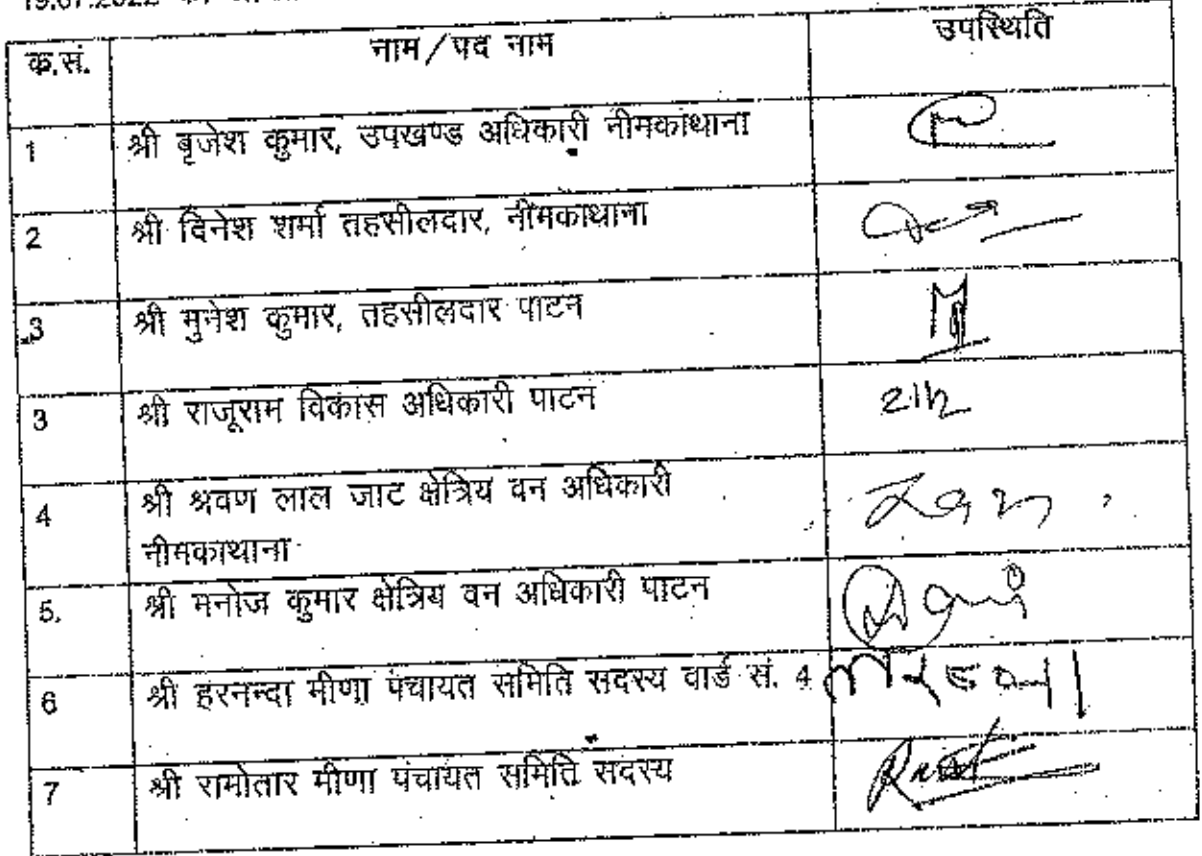 19.07.2022
क.सं. नाम/पद नाम उपस्थिति
1 श्री बृजेश कुमार, उपखण्ड अधिकारी नीमकाथाना
2 श्री दिनेश शर्मा तहसीलदार, नीमकाथाना
3 श्री मुनेश कुमार, तहसीलदार पाटन
3 श्री राजूराम विकास अधिकारी पाटन
4 श्री श्रवण लाल जाट क्षेत्रिय वन अधिकारी
नीमकाथाना
5. श्री मनोज कुमार क्षेत्रिय वन अधिकारी पाटन
6 श्री हरनन्दा मीणा पंचायत समिति सदस्य वार्ड सं. 4
7 श्री रामोतार मीणा पंचायत समिति सदस्य